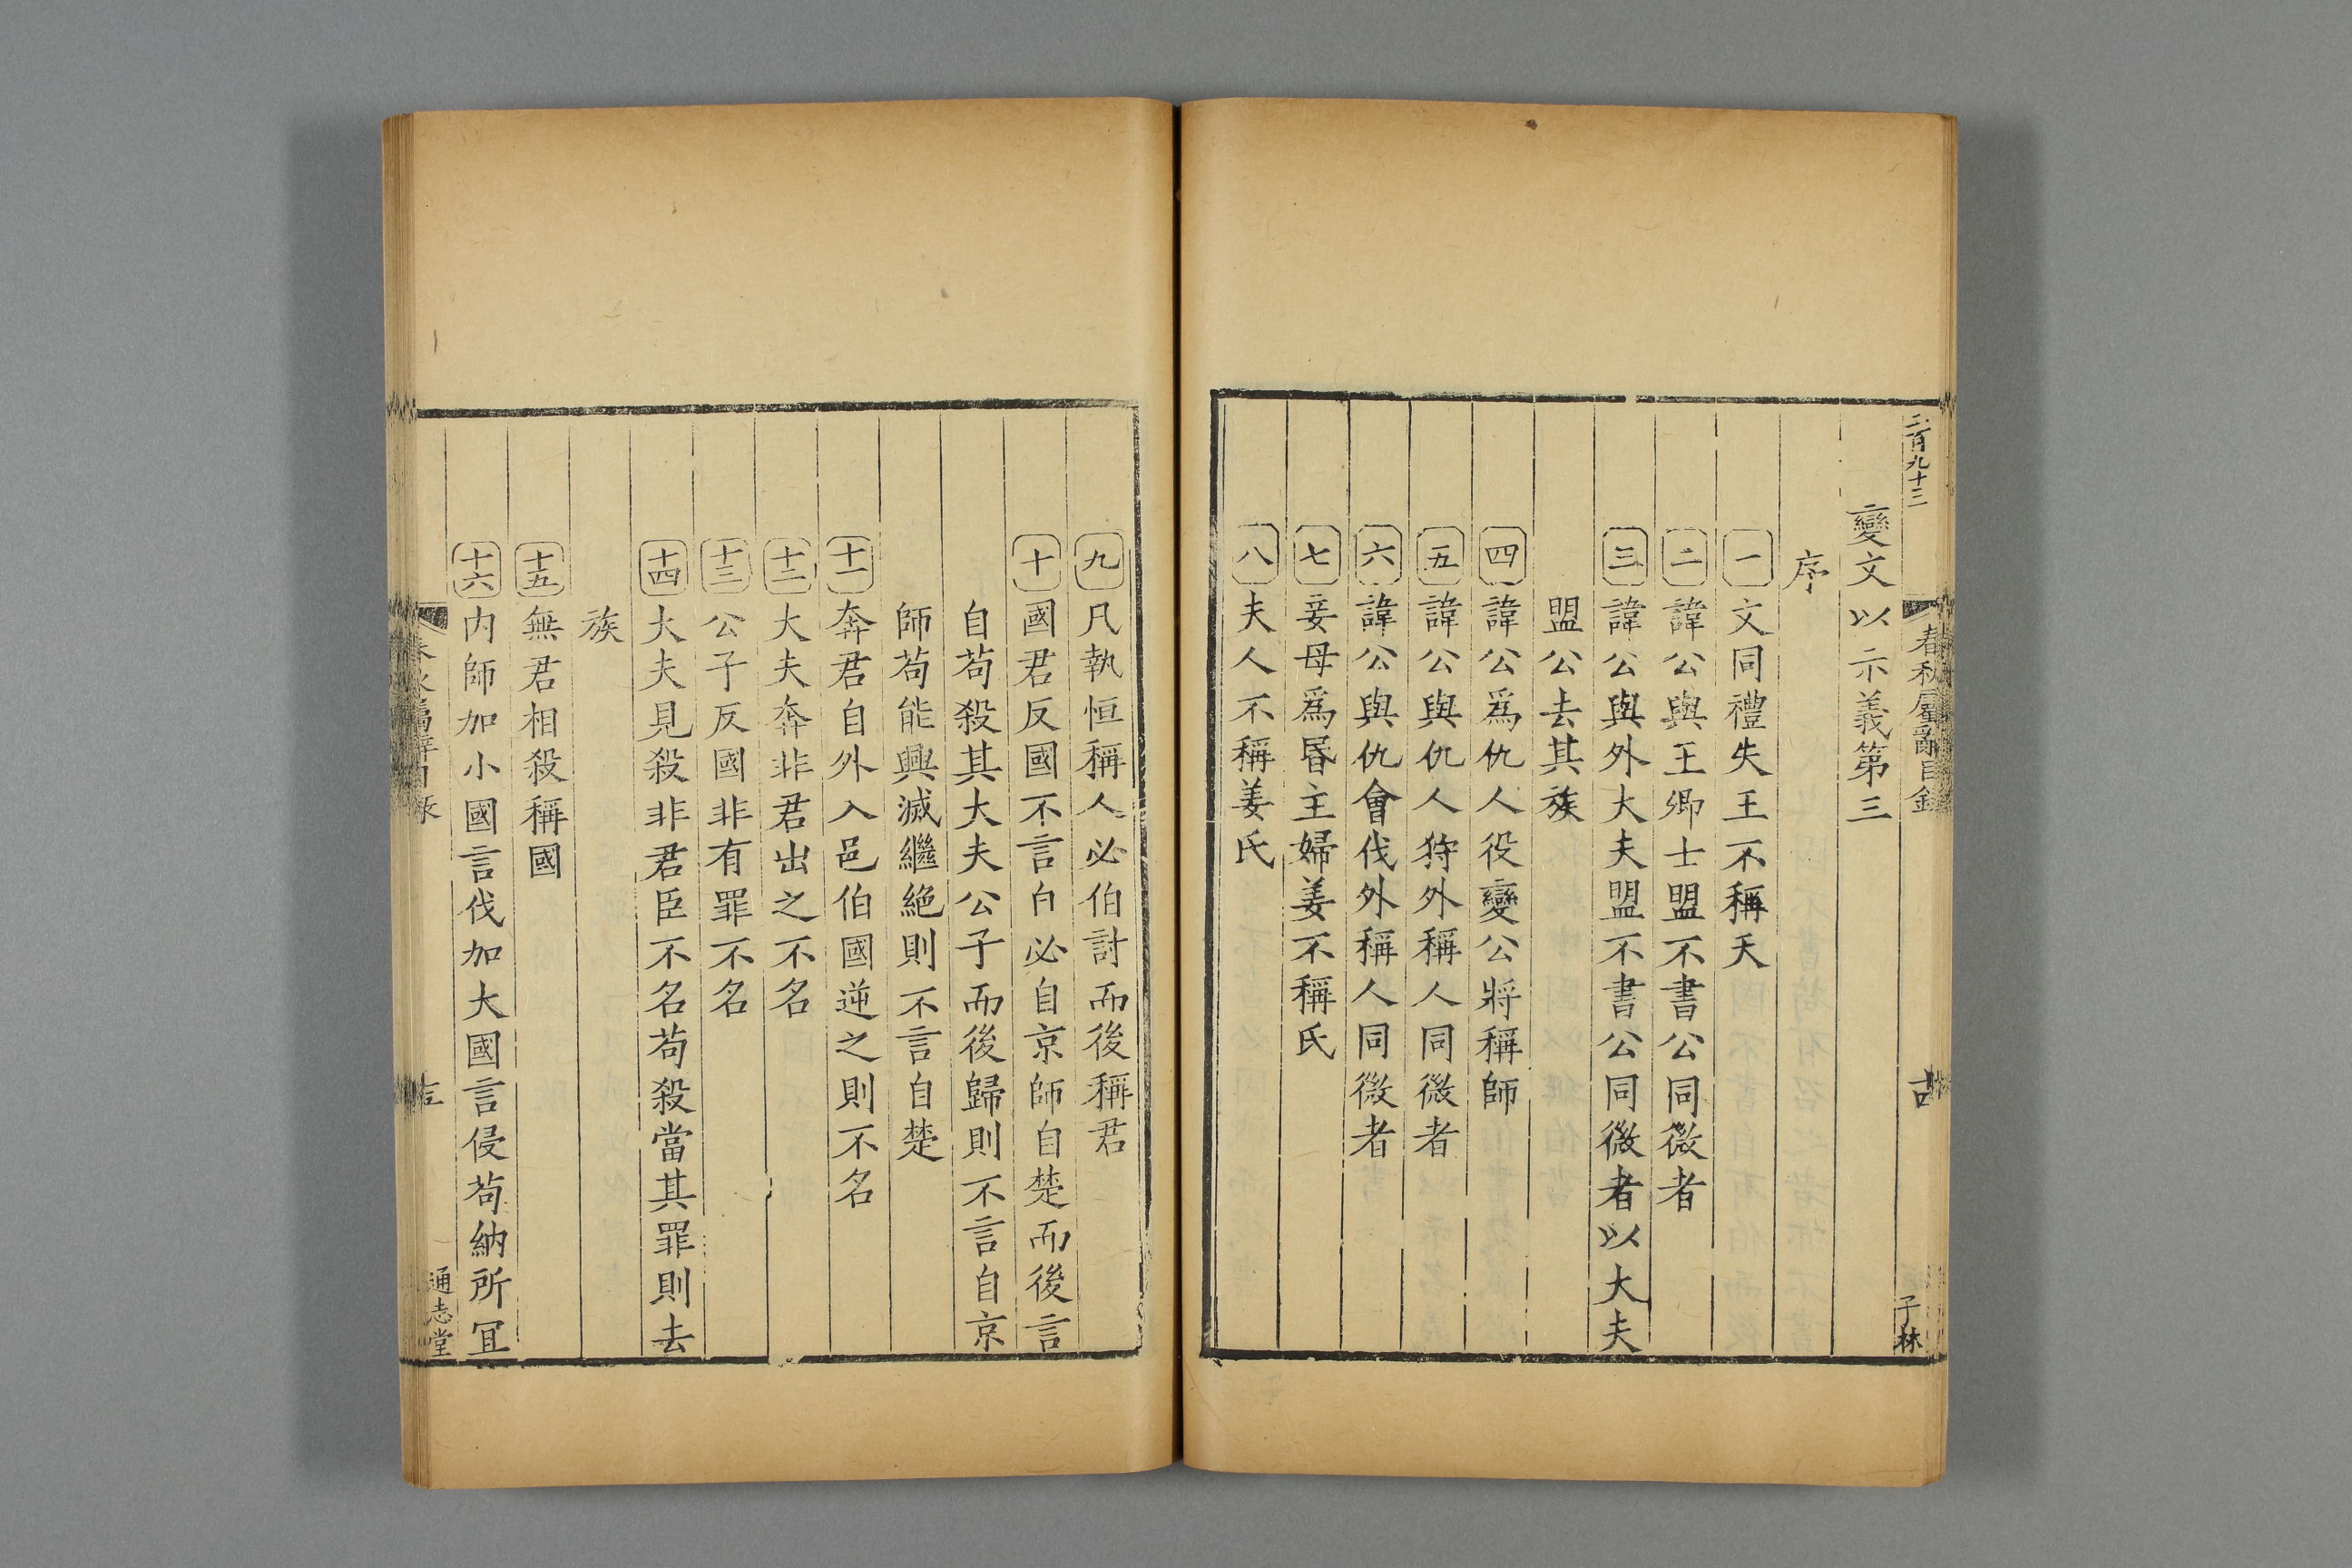 二百九十三
春秋屬辭目錄
子林
變文以示義第三
序
一 文同禮失王不稱天
二 諱公與王卿士盟不書公同微者
三 諱公與外大夫盟不書公同微者以大夫
盟公去其族
四 諱公爲仇人役變公將稱師
五 諱公與仇人狩外稱人同微者
六 諱公與仇會伐外稱人同微者
七 妾母爲昬主婦姜不稱氏
八 夫人不稱姜氏
九 凡執恒稱人必伯討而後稱君
十 國君反國不言自必自京師自楚而後言
自苟殺其大夫公子而後歸則不言自京
師苟能興滅繼絶則不言自楚
十一 奔君自外入邑伯國逆之則不名
十二 大夫奔非君出之不名
十三 公子反國非有罪不名
十四 大夫見殺非君臣不名苟殺當其罪則去
族
十五 無君相殺稱國
十六 内師加小國言伐加大國言侵苟納所冝
春秋屬辭目錄
通志堂